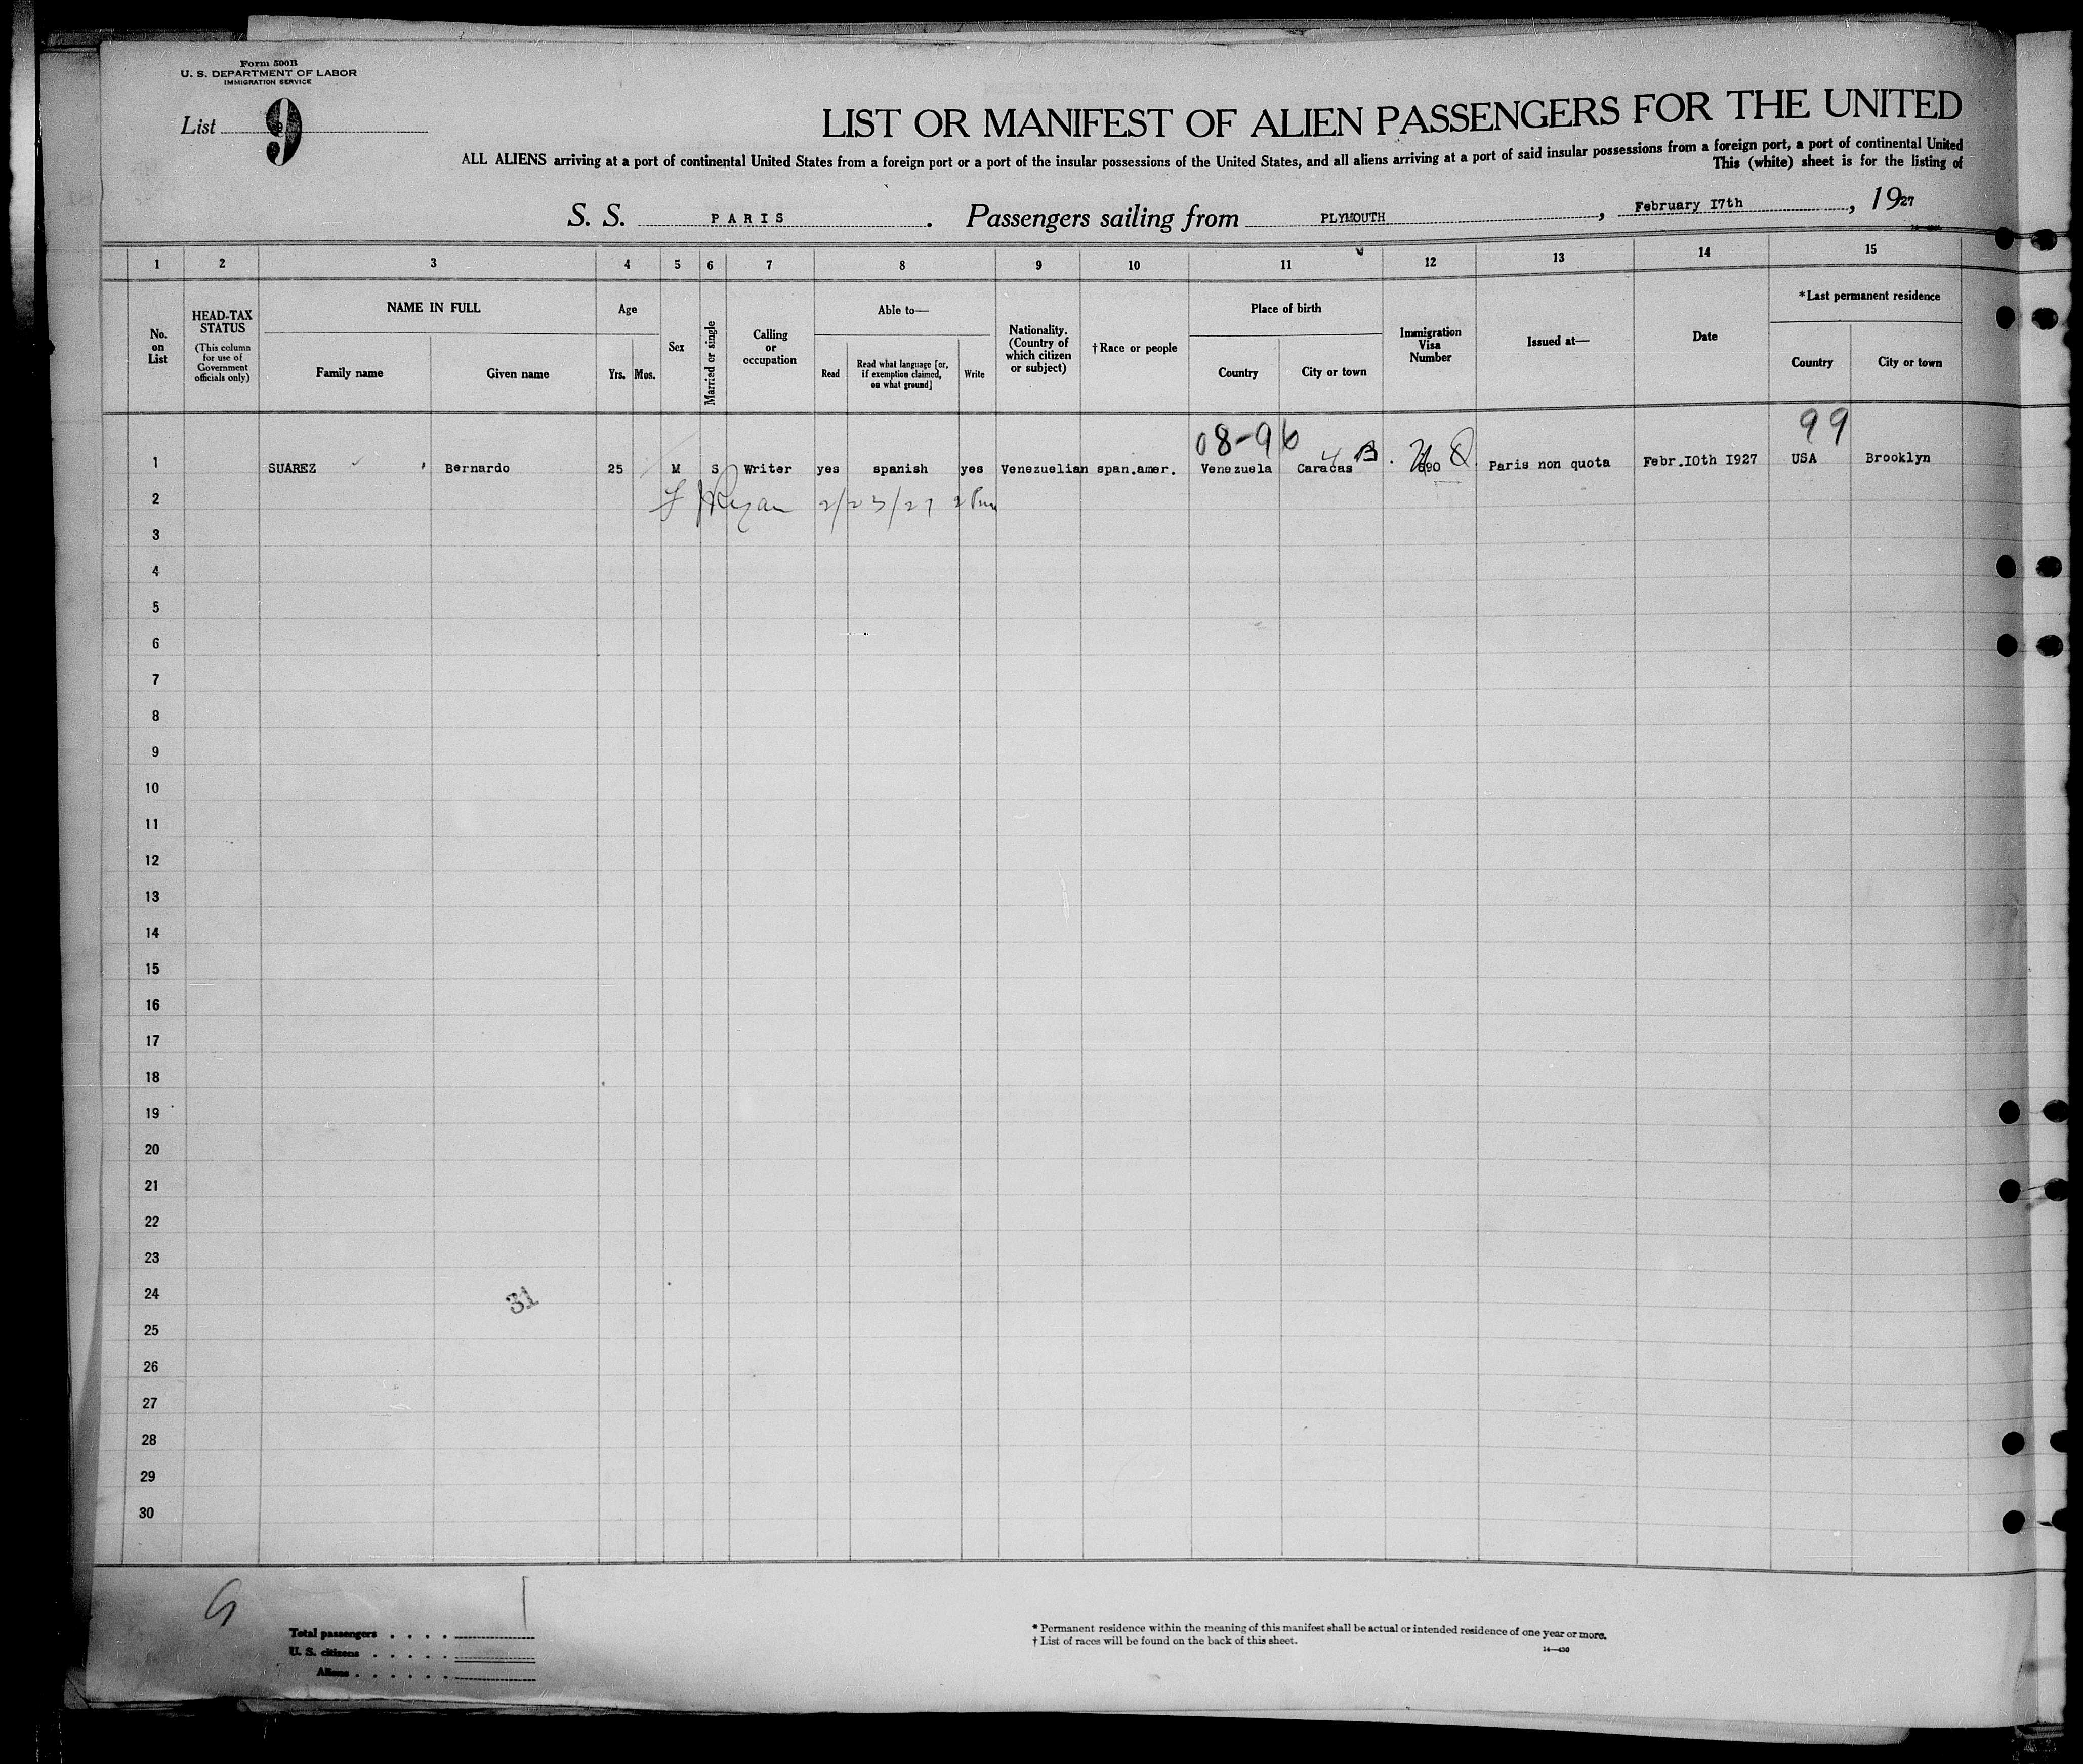 Form 500B
U. S. DEPARTMENT OF LABOR
IMMIGRATION SERVICE
List 9
LIST OR MANIFEST OF ALIEN PASSENGERS FOR THE UNITED
ALL ALIENS arriving at a port of continental United States from a foreign port or a port of the insular possessions of the United States, and all aliens arriving at a port of said insular possessions from a foreign port, a port of continental United
This (white) sheet is for the listing of
S. S. PARIS . Passengers sailing from PLYMOUTH , February I7th , 1927
1 2 3 4 5 6 7 8 9 10 11 12 13 14 15
No. on List
HEAD-TAX STATUS
(This column for use of Government officials only)
NAME IN FULL
Family name Given name
Age
Yrs. Mos.
Sex
Married or single
Calling or occupation
Able to—
Read
Read what language [or, if exemption claimed, on what ground]
Write
Nationality. (Country of which citizen or subject)
†Race or people
Place of birth
Country City or town
Immigration Visa Number
Issued at—
Date
*Last permanent residence
Country City or town
08-96 99
1 SUAREZ Bernardo 25 M S Writer yes spanish yes Venezuelian span.amer. Venezuela Caracas 4 B Paris non quota Febr.I0th I927 USA Brooklyn
2 Ryan 2/23/27
3
4
5
6
7
8
9
10
11
12
13
14
15
16
17
18
19
20
21
22
23
24
31
25
26
27
28
29
30
Total passengers
U. S. citizens
Aliens
* Permanent residence within the meaning of this manifest shall be actual or intended residence of one year or more.
† List of races will be found on the back of this sheet.
14—430